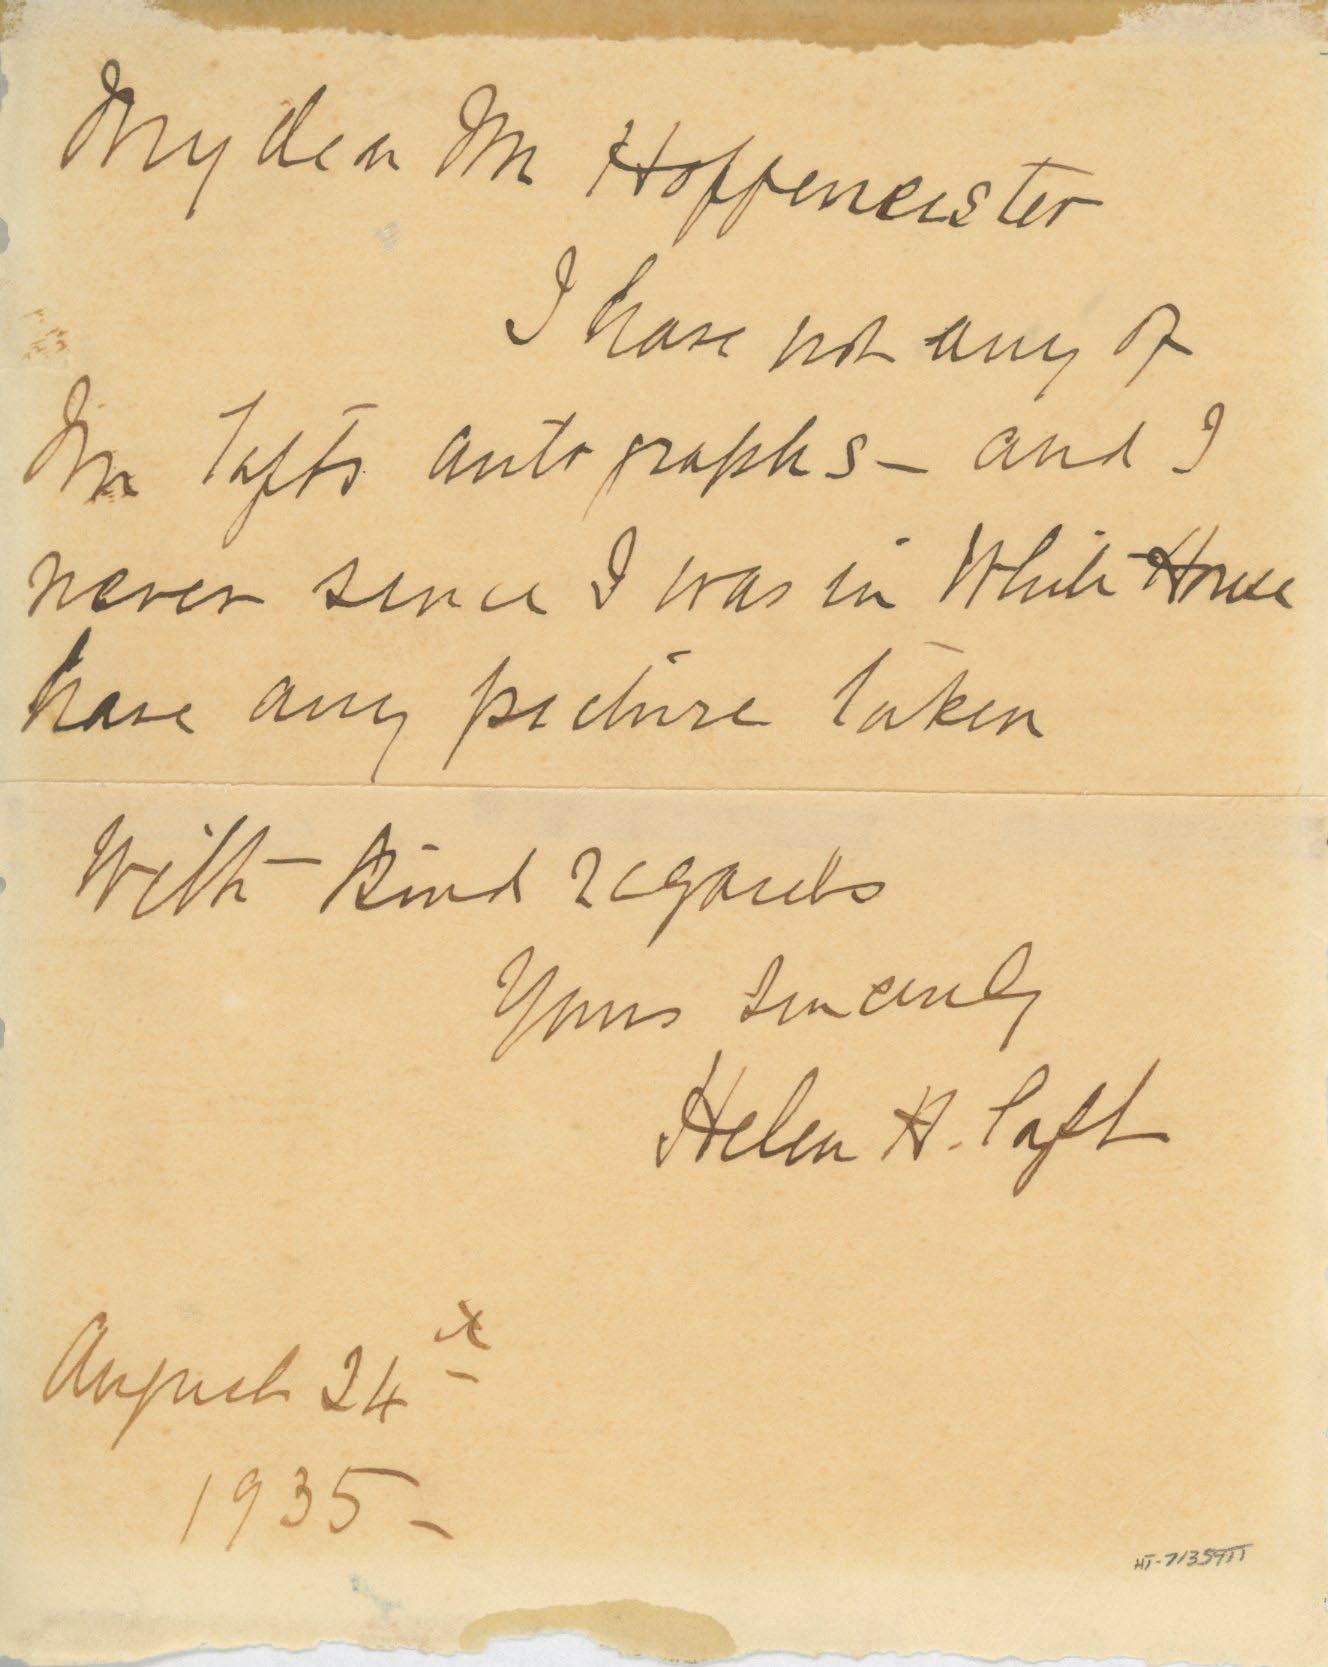 My dear Mr Hoffmeister
I have not any of
Mr Tafts autographs – and I
never since I was in White House
have any picture taken
With kind regards
Yours sincerely
Helen H. Taft
August 24th
1935 –